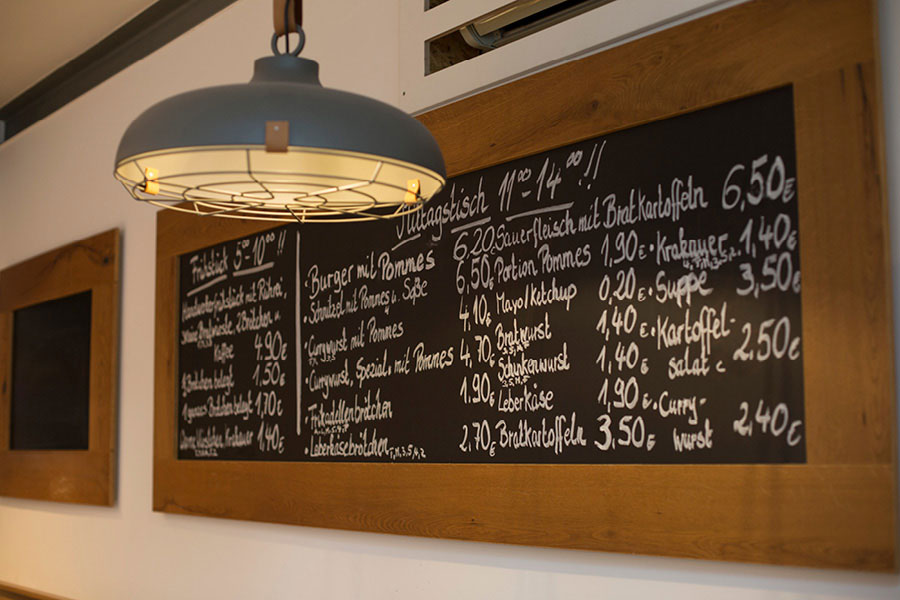 Frühstück 5-10⁰⁰!!
Handwerkerfrühstück mit Rührei,
kleine Bratwürste, 2 Brötchen u.
Kaffee 4,90€
½ Brötchen belegt 1,50€
1 ganzes Brötchen belegt 1,70€
Warme Würstchen, Krakauer 1,40€
Mittagstisch 11⁰⁰-14⁰⁰!!
• Burger mit Pommes 6,20
• Schnitzel mit Pommes u. Soße 6,50€
• Currywurst mit Pommes 4,10€
• Currywurst, Spezial, mit Pommes 4,70€
• Frikadellenbrötchen 1,90€
• Leberkäsebrötchen 2,70€
Sauerfleisch mit Bratkartoffeln 6,50€
Portion Pommes 1,90€
Mayo/Ketchup 0,20€
Bratwurst 1,40€
Schinkenwurst 1,40€
Leberkäse 1,90€
Bratkartoffeln 3,50€
• Krakauer 1,40€
• Suppe 3,50€
• Kartoffel-
salat 2,50€
• Curry-
wurst 2,40€